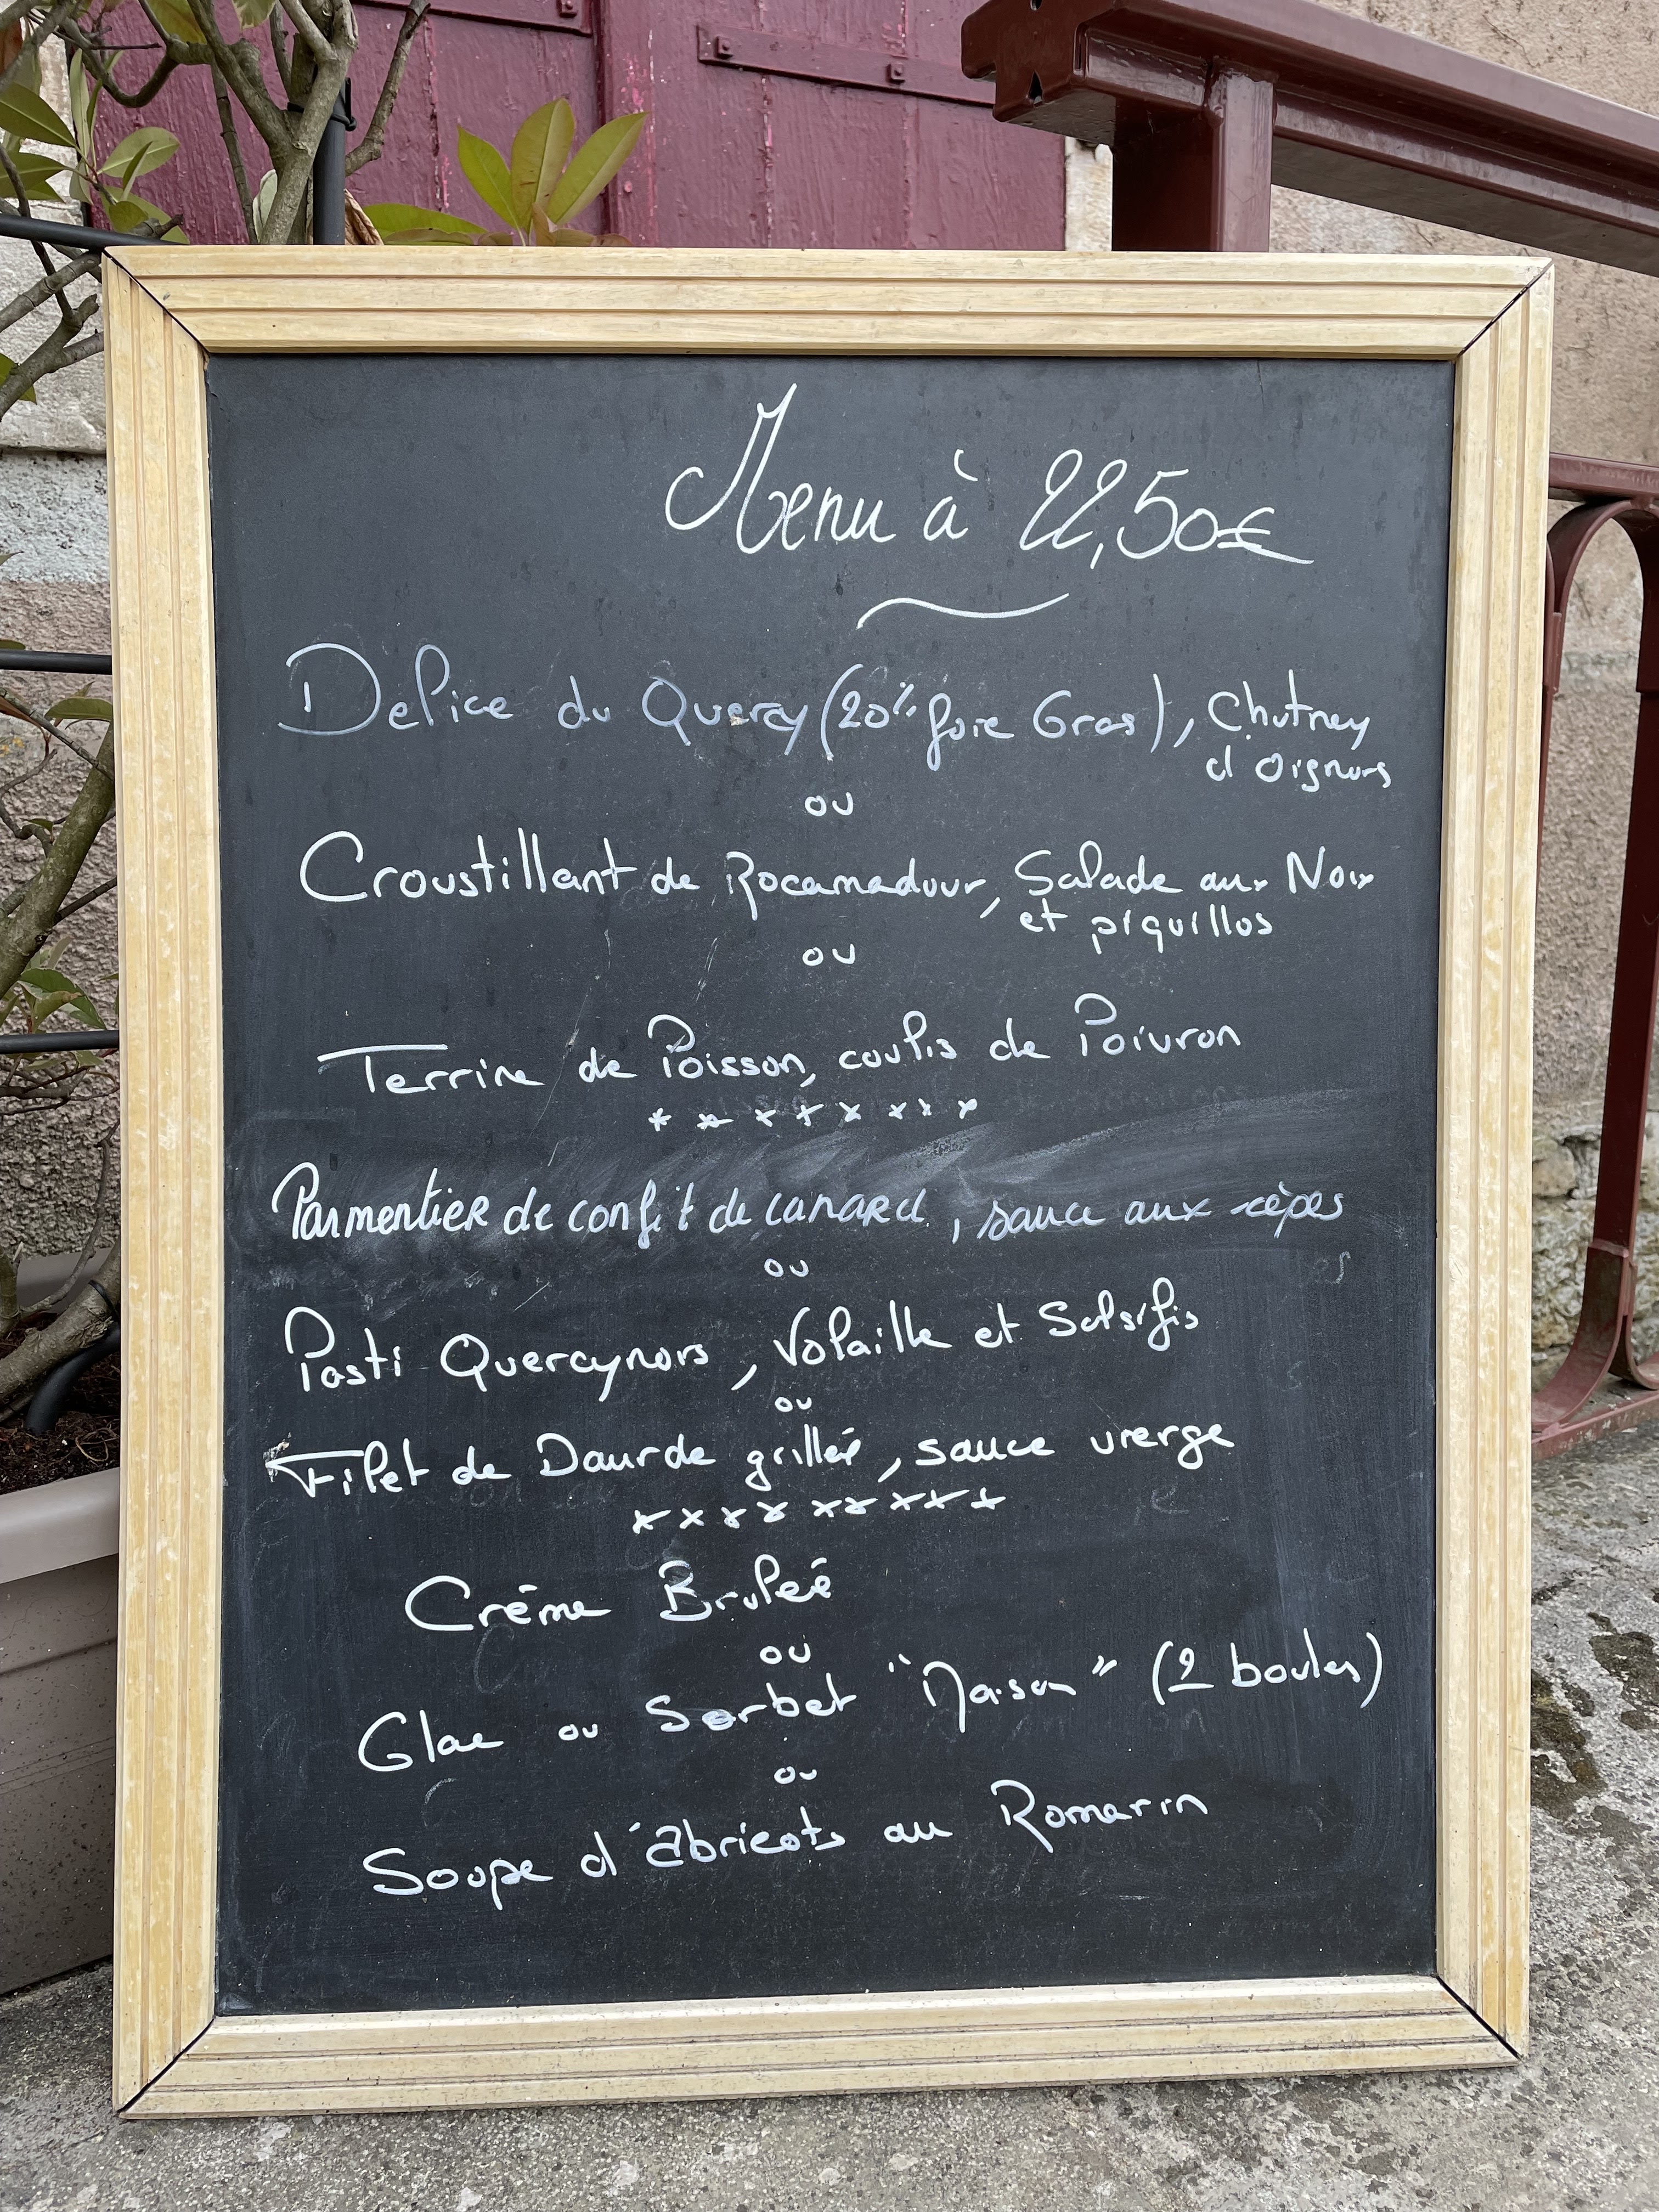 Menu à 22,50€
Delice du Quercy (20% foie Gras), Chutney
d'oignons
ou
Croustillant de Rocamadour, Salade aux Noix
et piquillos
ou
Terrine de Poisson, coulis de Poivron
* * * * * * * *
Parmentier de confit de canard, sauce aux cèpes
ou
Pasti Quercynois, Volaille et Salsifis
ou
Filet de Daurade grillée, sauce vierge
* * * * * * * * *
Crème Brulée
ou
Glace ou Sorbet "Maison" (2 boules)
ou
Soupe d'abricots au Romarin